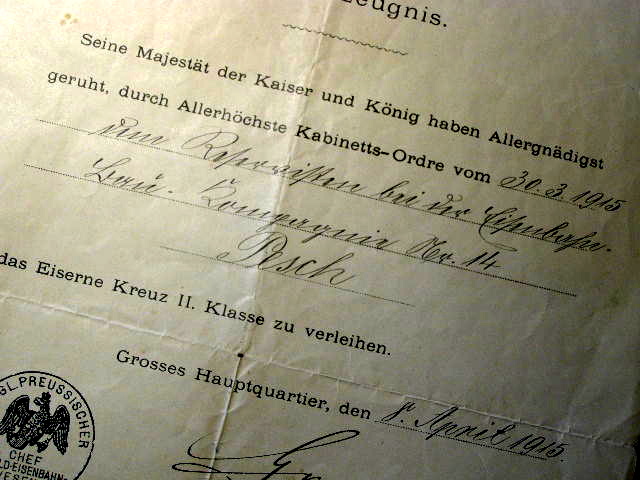 eugnis.
Seine Majestät der Kaiser und König haben Allergnädigst
geruht, durch Allerhöchste Kabinetts-Ordre vom 30.3.1915
dem Reservisten bei der Eisenbahn-
Bau-Kompagnie Nr. 14
Resch
das Eiserne Kreuz II. Klasse zu verleihen.
Grosses Hauptquartier, den 8. April 1915.
GL. PREUSSISCHER
CHEF
LD-EISENBAHN-